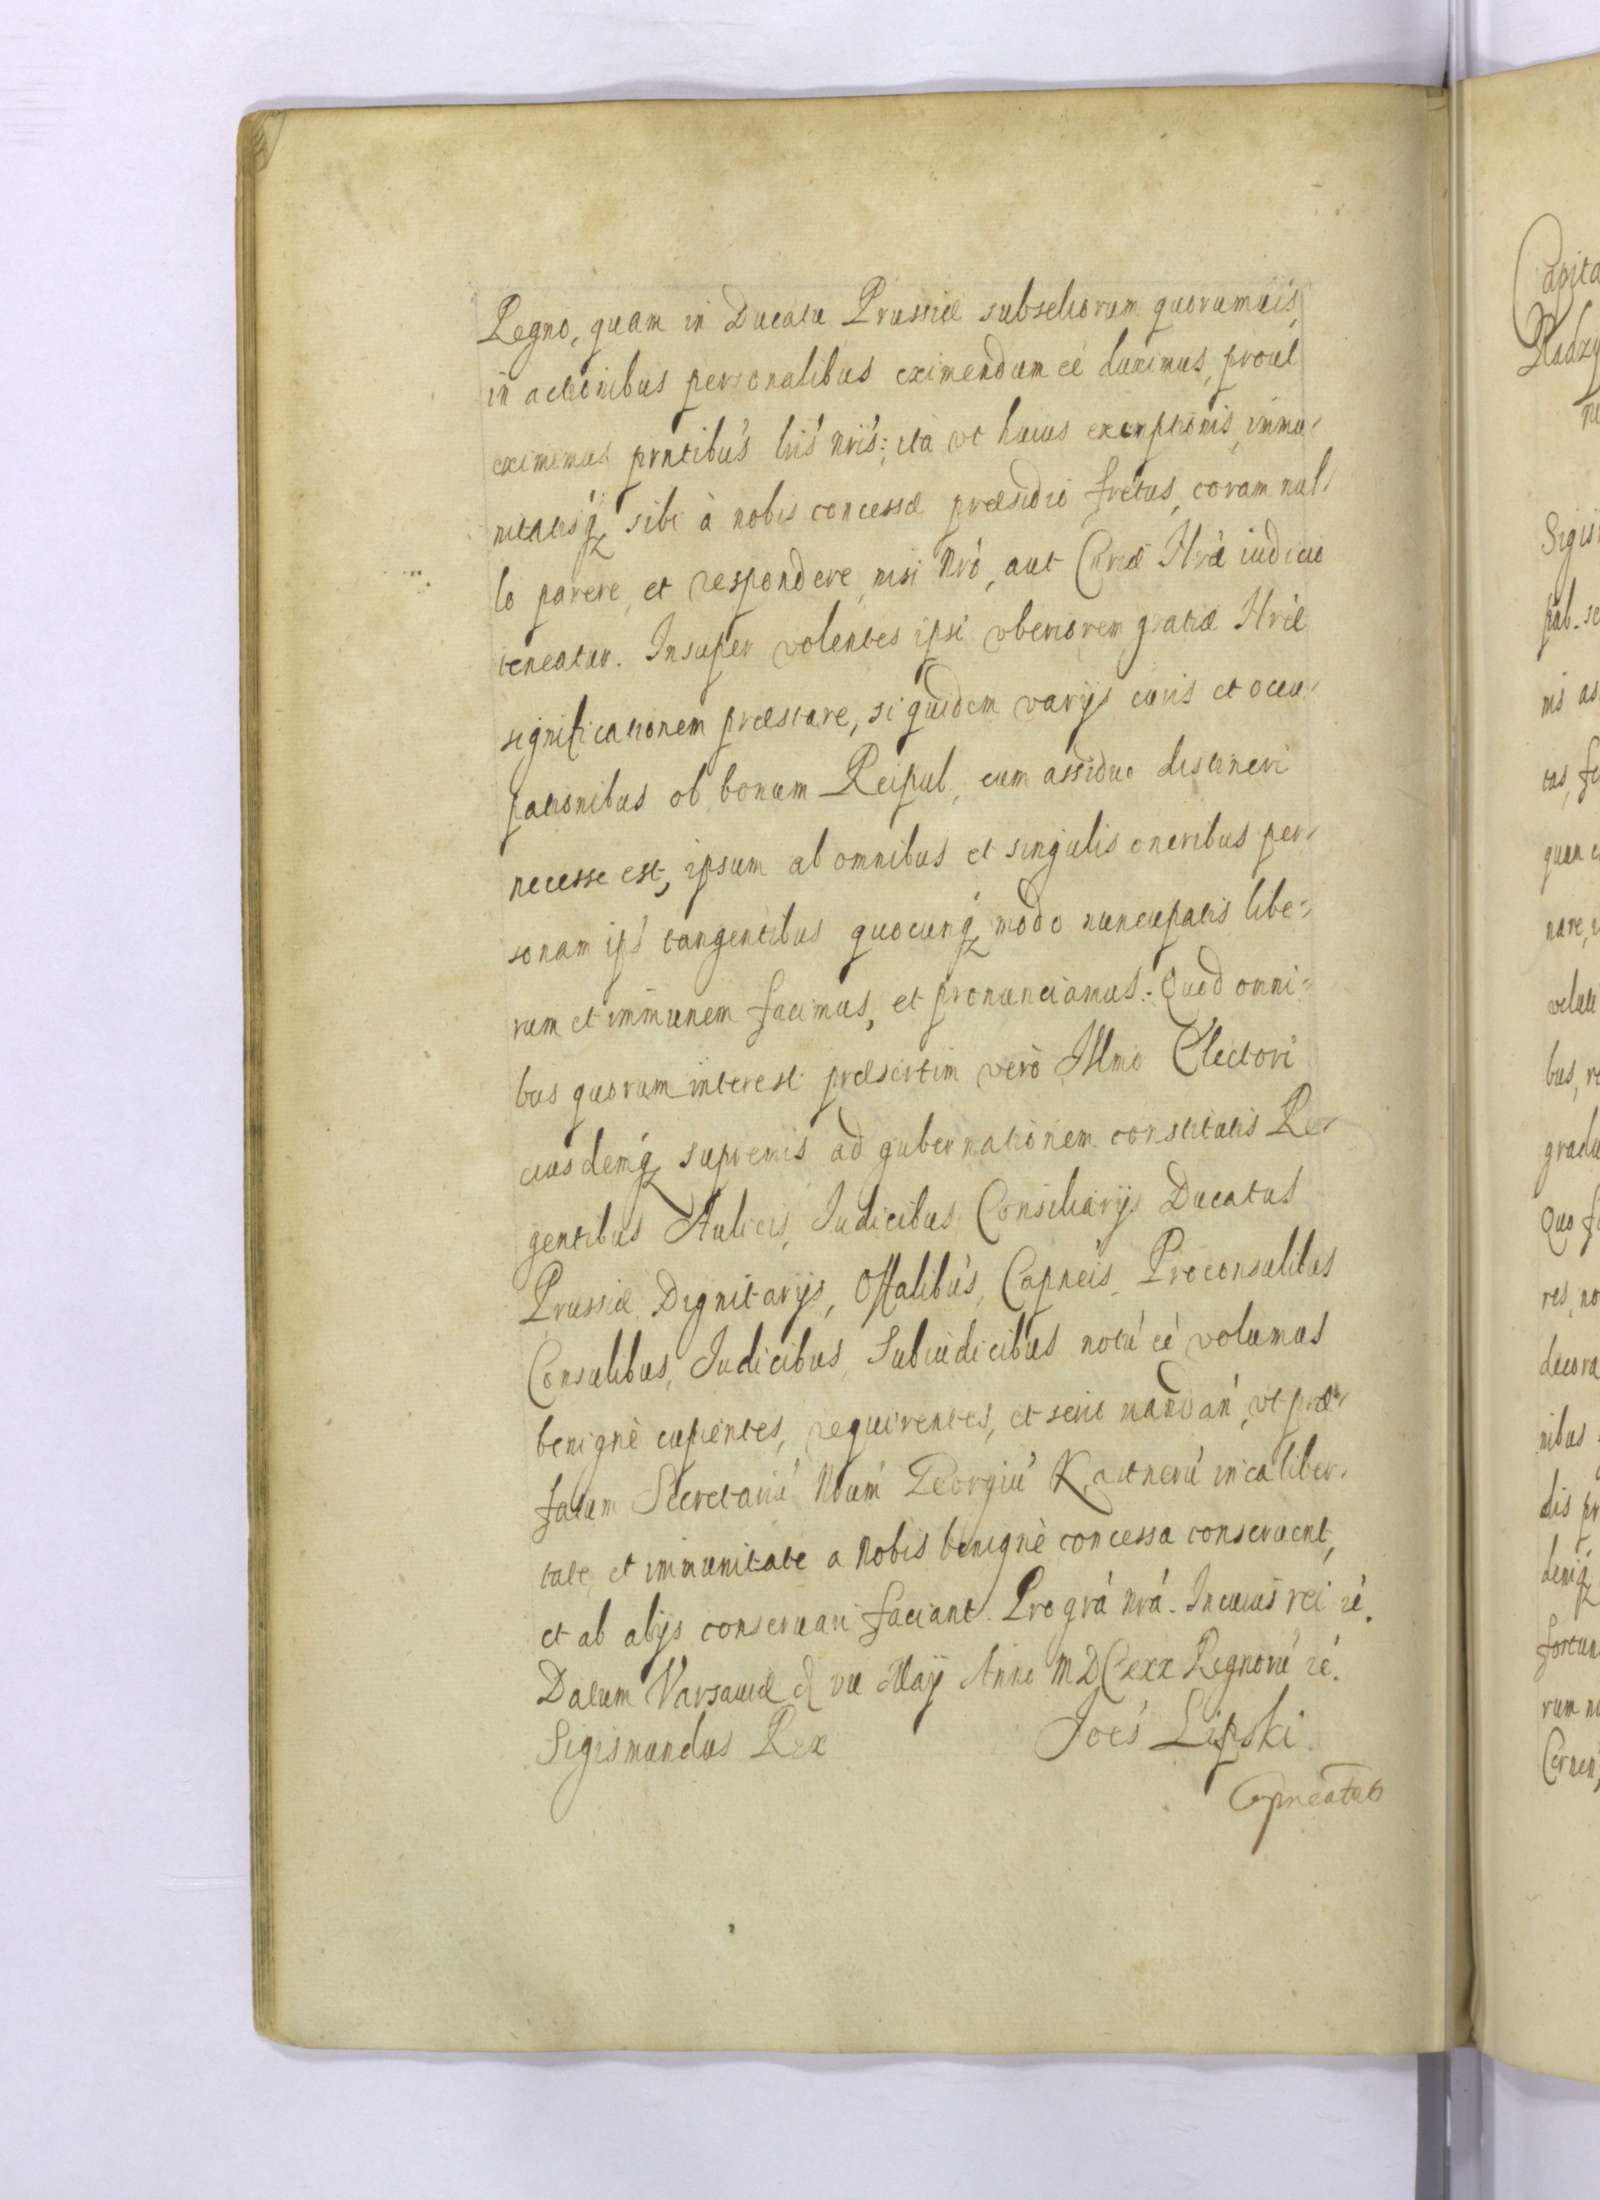 Regno, quam in Ducatu Prussiæ subseliorum quorumuis,
in actionibus personalibus eximendum eé duximus, prout
eximimus prntibus lris nris: ita vt huius exemptionis, immu-
nitatisq sibi à nobis concessæ præsidio fretus, coram nul-
lo parere, et respondere, nisi Nró, aut Curiæ Nræ iudicio
teneatur. Insuper volentes ipsi vberiorem gratiæ Nræ
significationem præstare, si quidem varijs curis et occu-
pationibus ob bonum Reipub, eum assiduo distineri
necesse est, ipsum ab omnibus et singulis oneribus per-
sonam ips tangentibus quocunq modo nuncupatis libe-
rum et immunem facimus, et pronunciamus. Quod omni-
bus quorum interest præsertim verò Illmo Electori
eiusdemq supremis ad gubernationem constitutis Re-
gentibus Aulicis, Iudicibus Consiliarijs Ducatus
Prussiæ Dignitarijs, Offalibus, Capneis, Proconsulibus
Consulibus, Iudicibus, Subiudicibus notú eé volumus
benignè cupientes, requirentes, et serio mandań, vt præ-
fatum Secretariú Nrum Georgiú Kastnerú in ea liber-
tate et immunitate a Nobis benignè concessa conseruent,
et ab alijs conseruari faciant. Pro grá nrá. In cuius rei ré.
Datum Varsauiæ d vii Maij Anno MDCxxx Regnorú ré.
Sigismundus Rex Joes Lipski.
Capneatus
Capita
Radzy
Sigis
pub. se
nis as
tas, fe
quan
nare,
velute
bus, re
gradu
Quo fa
res, no
decora
nibus
dis pr
deniq
fortun
rum
Cernen